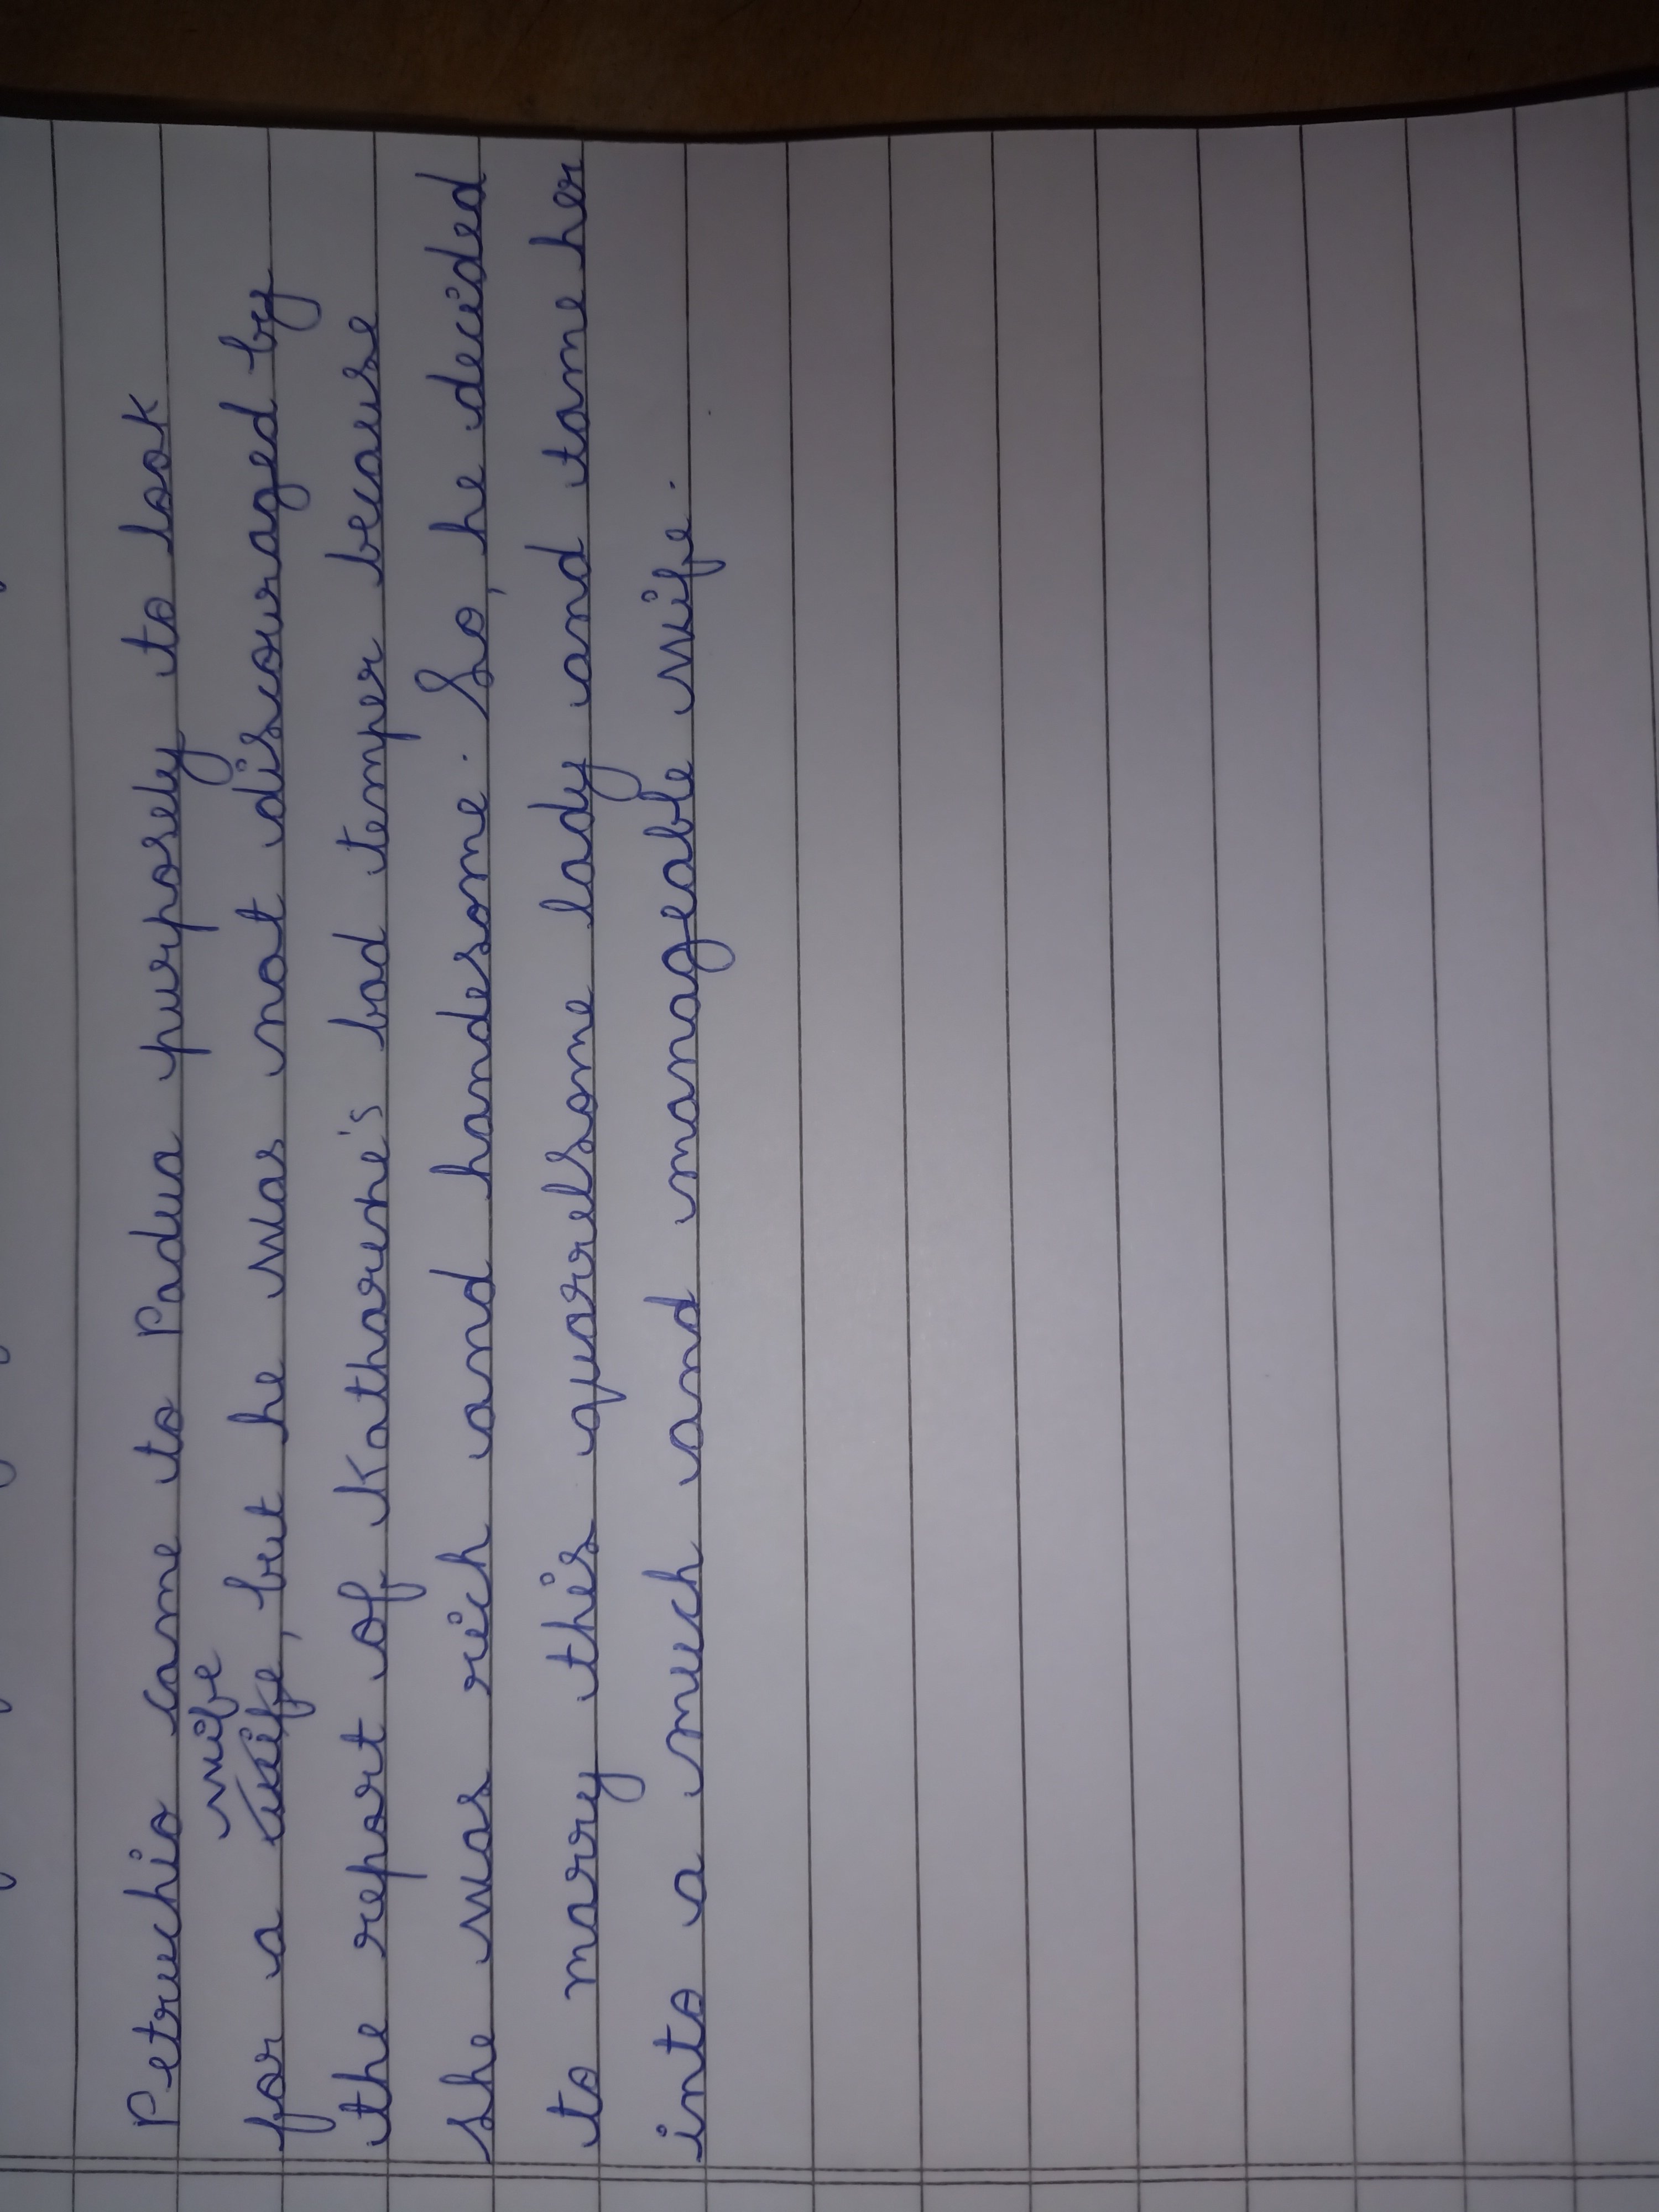 Petruchio came to Padua purposely to look
wife
for a wife, but he was not discouraged by
the report of Katharene's bad temper because
she was rich and handesome. So, he decided
to marry this quarrelsome lady and tame her
into a much and manageable wife.